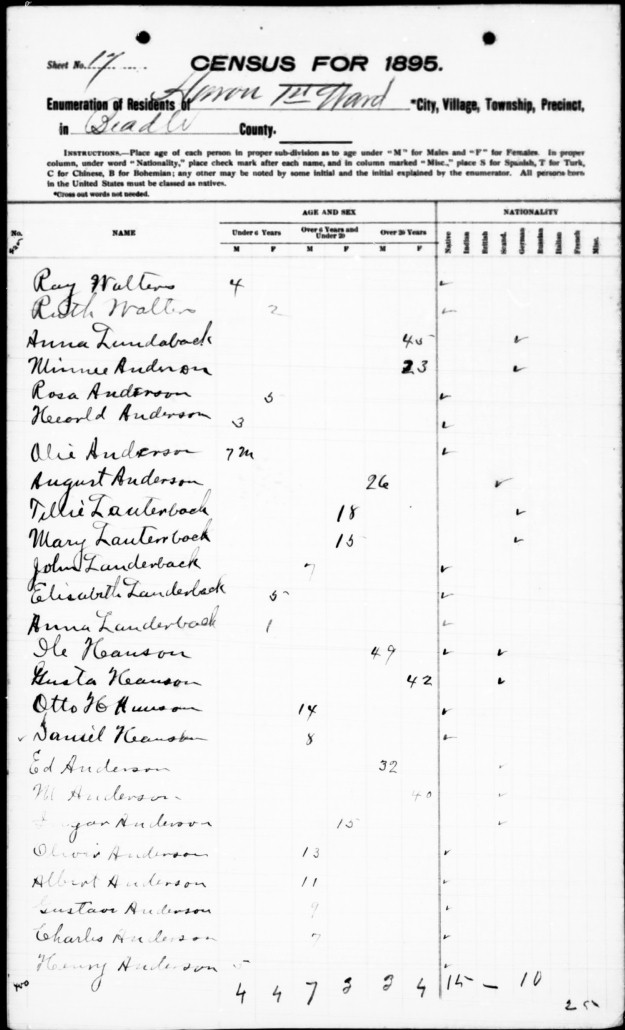 Sheet No. 17
CENSUS FOR 1895.
Enumeration of Residents of Huron 1st Ward *City, Village, Township, Precinct,
in Beadle County.
INSTRUCTIONS.—Place age of each person in proper sub-division as to age under "M" for Males and "F" for Females. In proper
column, under word "Nationality," place check mark after each name, and in column marked "Misc.," place S for Spanish, T for Turk,
C for Chinese, B for Bohemian; any other may be noted by some initial and the initial explained by the enumerator. All persons born
in the United States must be classed as natives.
*Cross out words not needed.
AGE AND SEX NATIONALITY
No. NAME Under 6 Years Over 6 Years and Under 20 Over 20 Years Native Indian British Scand. German Russian Italian French Misc.
M F M F M F
Ray Walters 4 ✓
Ruth Walters 2 ✓
Anna Lundaback 45 ✓
Minnie Anderson 23 ✓
Rosa Anderson 5 ✓
Hearld Anderson 3 ✓
Olie Anderson 7m ✓
August Anderson 26 ✓
Tillie Lauterback 18 ✓
Mary Lauterrback 15 ✓
John Landerback 7 ✓
Elisabeth Landerback 5 ✓
Anna Landerback 1 ✓
Ole Heanson 49 ✓ ✓
Gusta Heanson 42 ✓
Otto H Hanson 14 ✓
✓ Daniel Heanson 8 ✓
Ed Anderson 32 ✓
M Anderson 40 ✓
Anderson 15 ✓
Olivia Anderson 13 ✓
Albert Anderson 11 ✓
Gustave Anderson 9 ✓
Charles Anderson 7 ✓
Henry Anderson 5 ✓
400 4 4 7 3 3 4 15 – 10
25